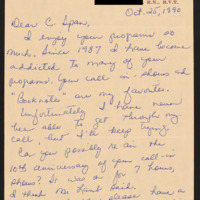 N.Y., N.Y.
Oct. 25, 1990
Dear C Span,
I enjoy your programs so
much. Since 1987 I have become
addicted to many of your
programs. Your call in shows and
"Booknotes" are my favorites.
Unfortunately I have never
been able to get through my
call, but I'll keep trying.
Can you possibly re air the
10th anniversary of your call-in
shows? It was on for 7 hours,
I think Mr. Lamb said.
please have a